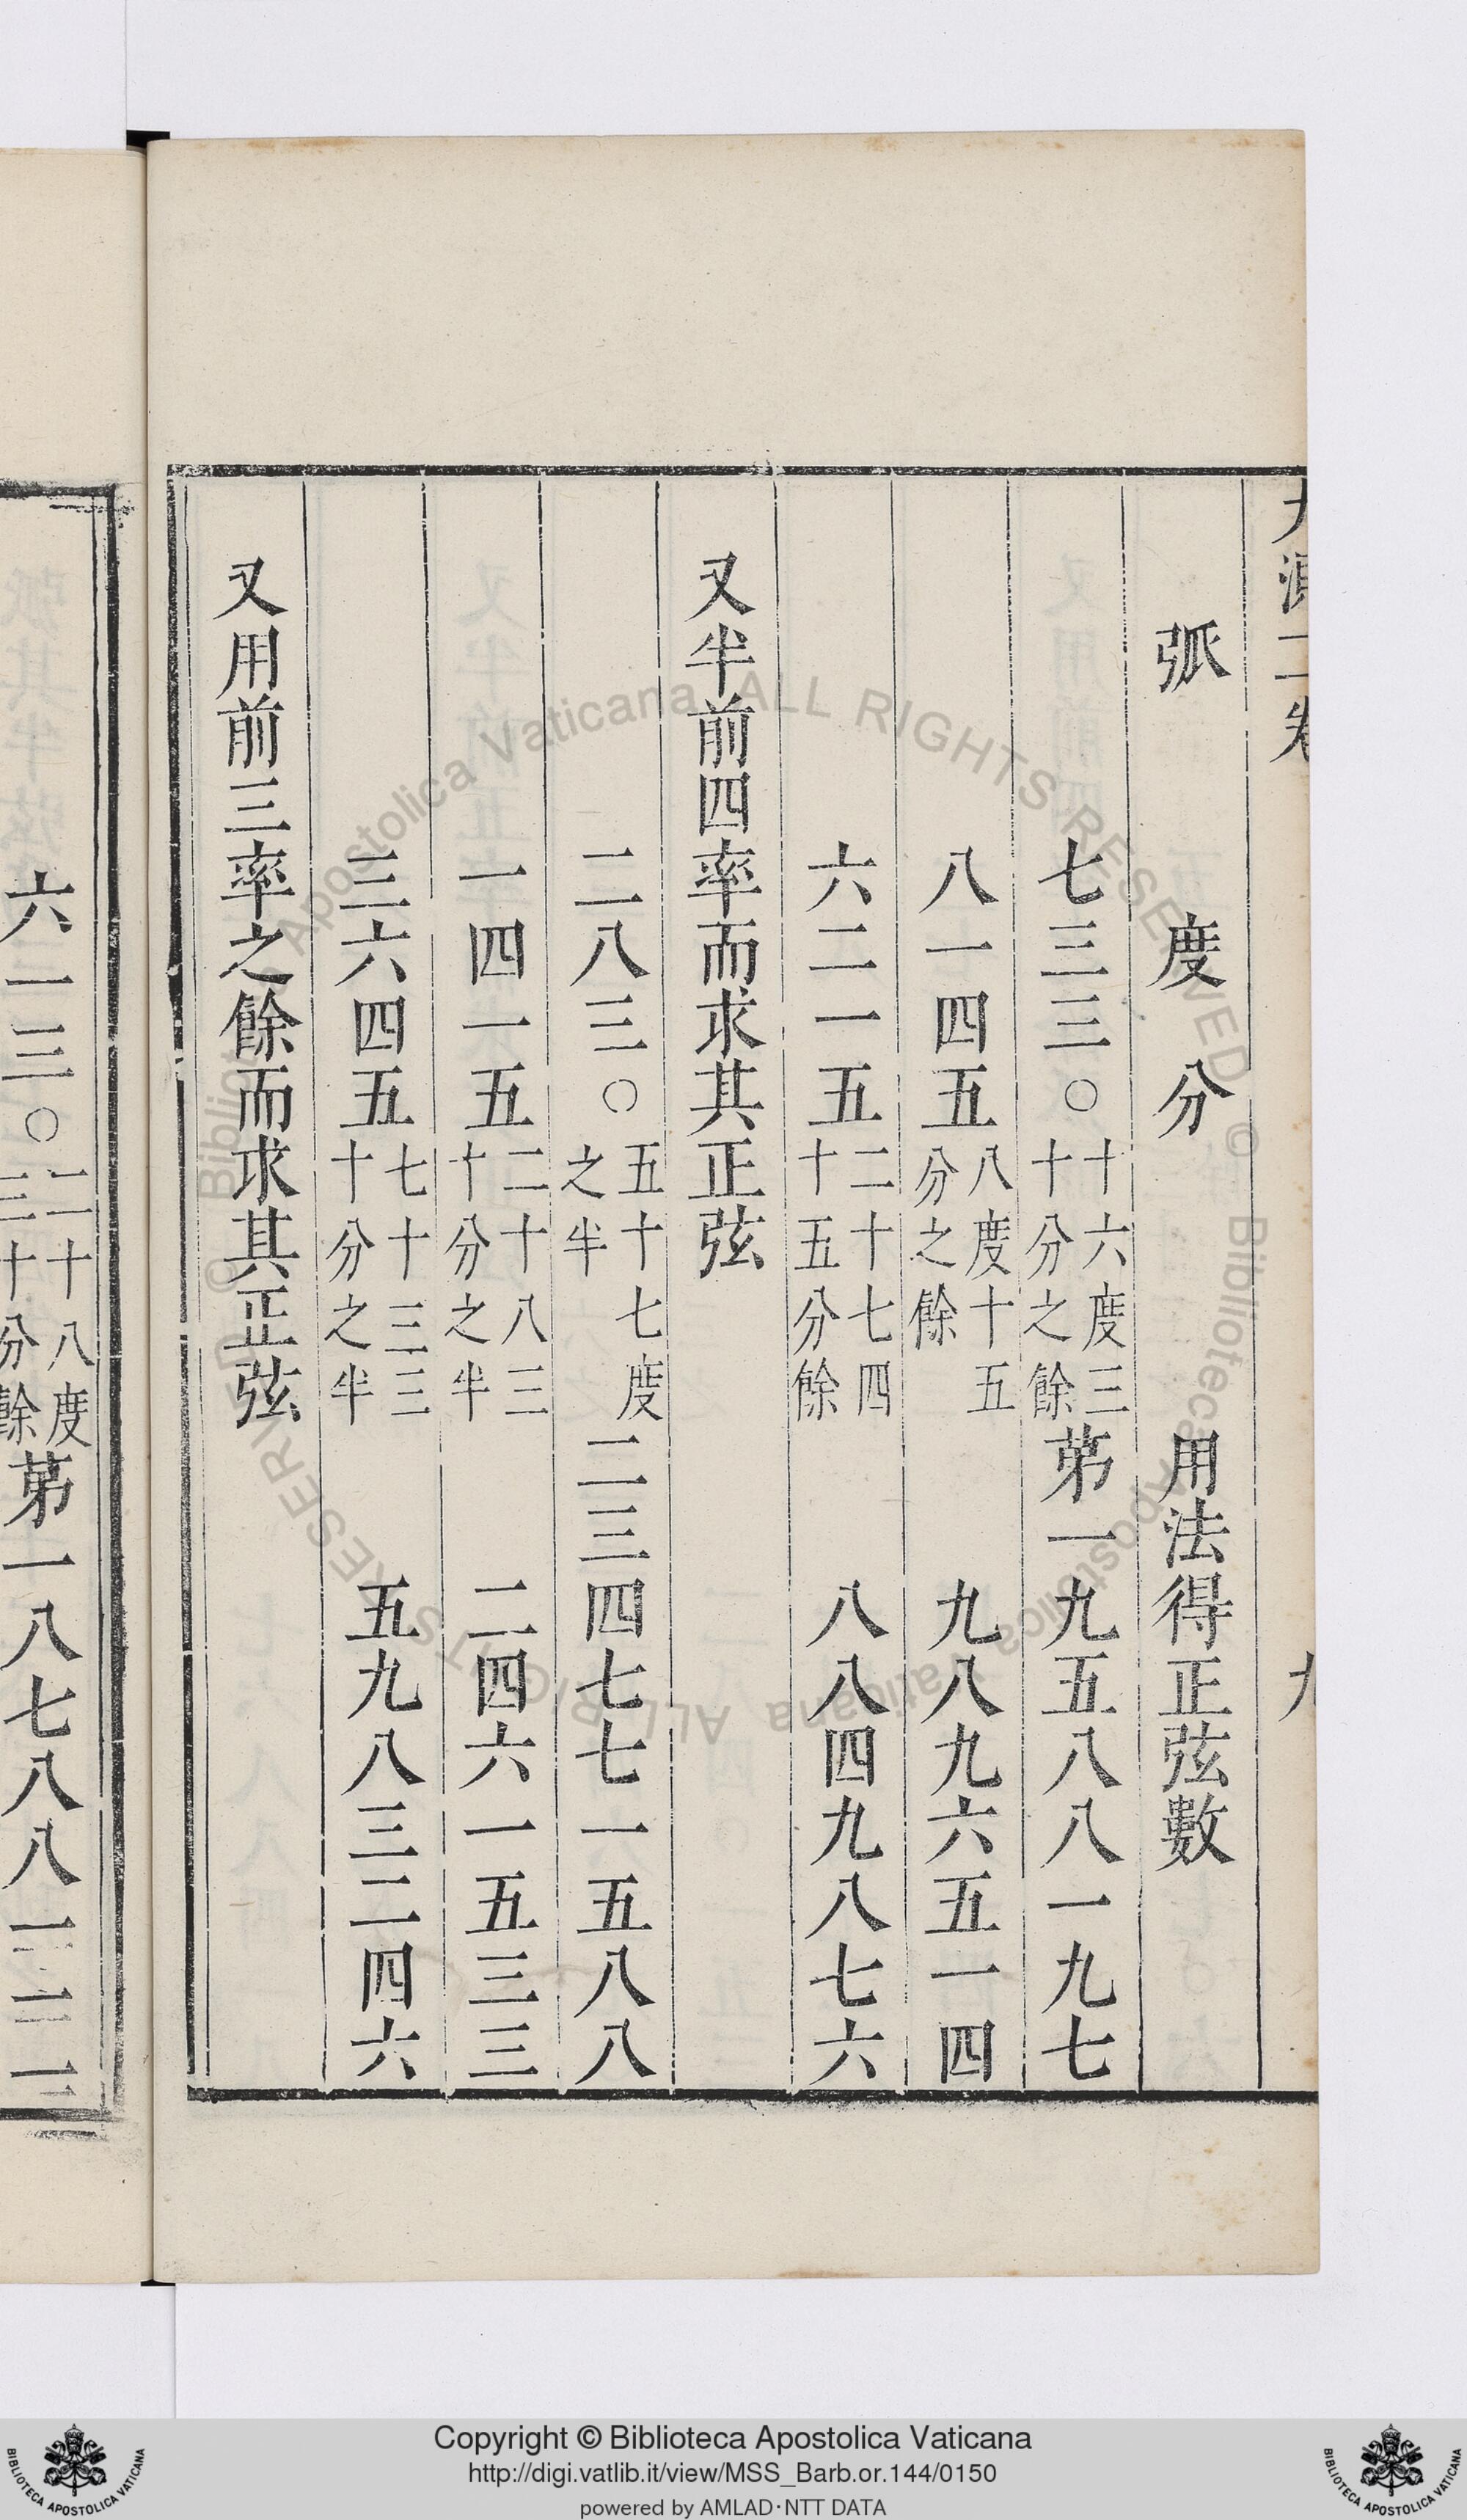 弧 度 分 用法得正弦數
七三三〇十六度三十分之餘第一九五八八一九七
八一四五八度十五分之餘 九八九六五一四
六二一五二十七四十五分餘 八八四九八七六
又半前四率而求其正弦
二八三〇五十七度之半二三四七七一五八八
一四一五二十八三十分之半 二四六一五三三
三六四五七十三三十分之半 五九八三二四六
又用前三率之餘而求其正弦
六一三〇二十八度三十分餘第一八七八八
Copyright © Biblioteca Apostolica Vaticana
http://digi.vatlib.it/view/MSS_Barb.or.144/0150
powered by AMLAD·NTT DATA
BIBLIOTECA APOSTOLICA VATICANA
BIBLIOTECA APOSTOLICA VATICANA
© Biblioteca Apostolica Vaticana ALL RIGHTS RESERVED © Biblioteca Apostolica Vaticana ALL RIGHTS RESERVED